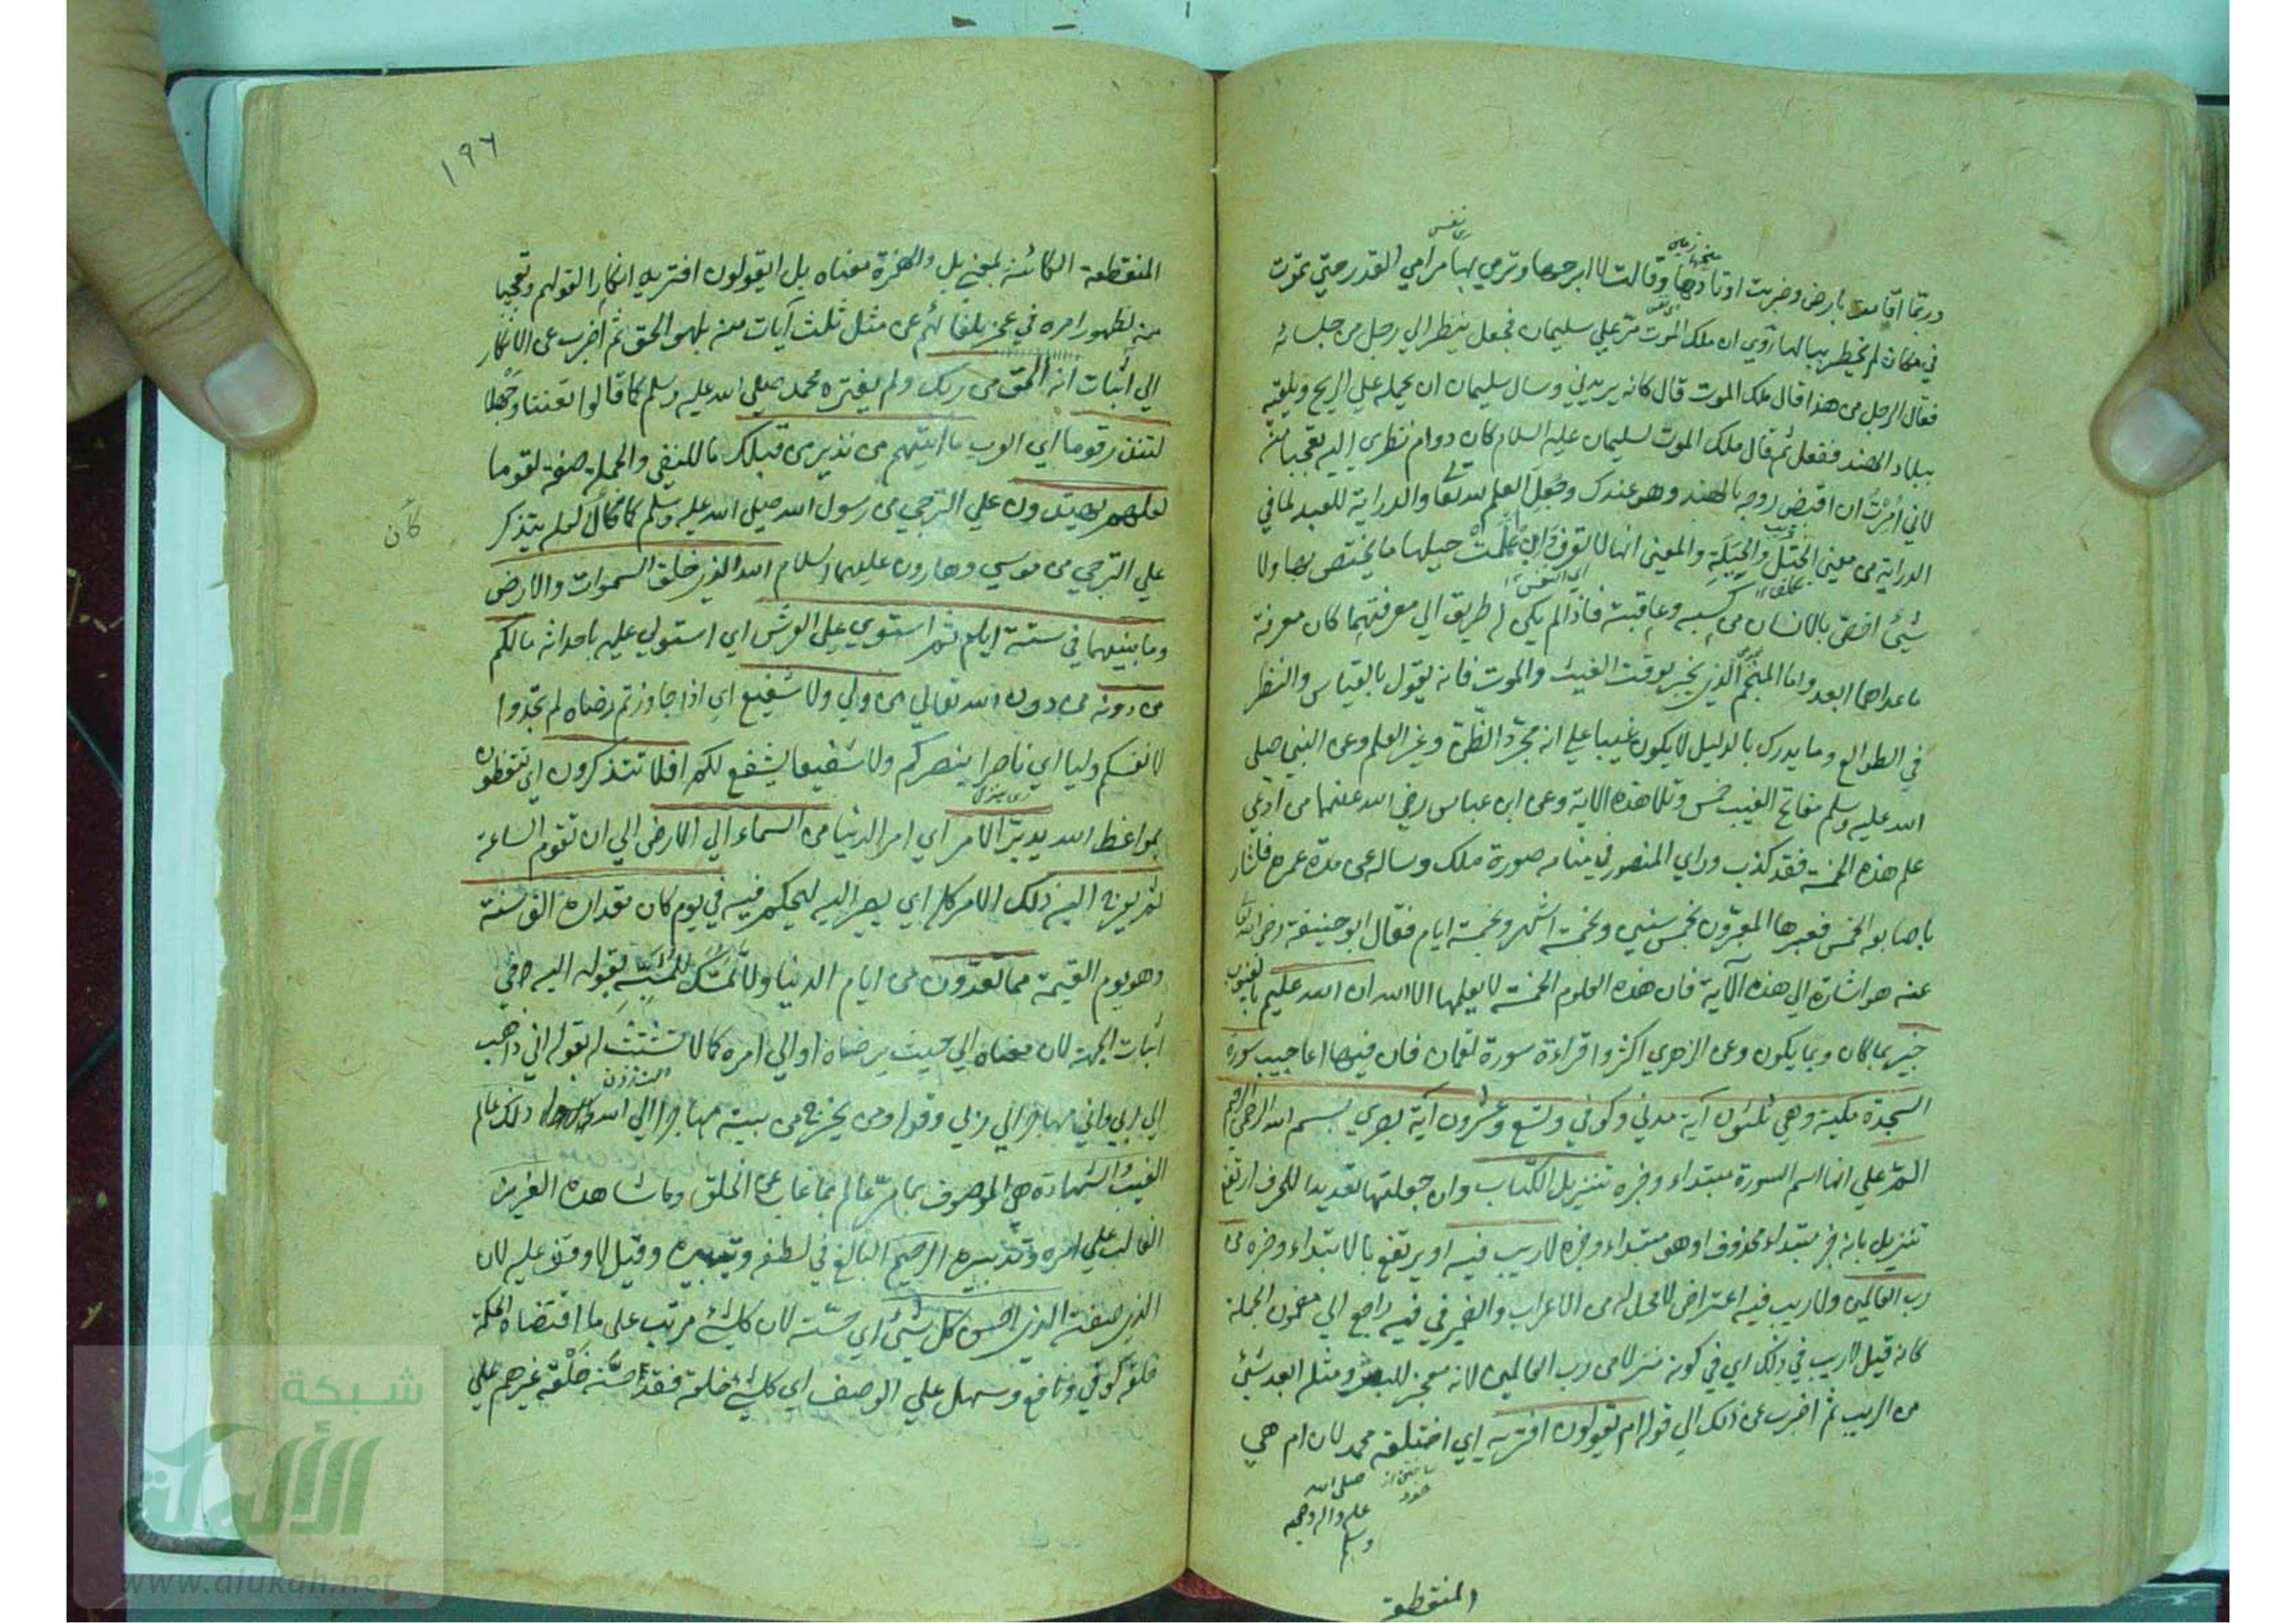 وربما اقامت بارض وضربت اوتادها وقالت لا ابرحها وترمي بها مرامي القدر حتي تموت
في مكان لم يخطر ببالها روي ان ملك الموت مر علي سليمان فجعل ينظر الي رجل من جلسائه
فقال الرجل من هذا قال ملك الموت قال كانه يريدني وسال سليمان ان يحمله علي الريح ويلقيه
ببلاد الهند ففعل ثم قال ملك الموت لسليمان عليه السلام كان دوام نظري اليه تعجبا منه
لاني اُمِرْتُ ان اقبض روحه بالهند وهو عندك وجُعِلَ العلم لله تعا والدراية للعبد لما في
الدراية من معني الختل والحيلة والمعني انها لا تعرف وان عملت حيلها ما يختص بها ولا
شيئ اخص بالانسان من كسبه وعاقبته فاذا لم يكن له طريق الي معرفتهما كان معرفة
ما عداهما ابعد واما المنجم الذي يخبر بوقت الغيث والموت فانه يقول بالقياس والنظر
في الطوالع وما يدرك بالدليل لا يكون غيبا علي انه مجرد الظن والظن غير العلم وعن النبي صلي
الله عليه وسلم مفاتح الغيب خمس وتلا هذه الاية وعن ابن عباس رضي الله عنهما من ادعي
علم هذه الخمسة فقد كذب وراي المنصور في منامه صورة ملك وساله عن مدة عمره فاشار
باصابعه الخمس فعبرها المعبرون بخمس سنين وبخمسة اشهر وبخمسة ايام فقال ابو حنيفة رضي الله تعا
عنه هو اشارة الي هذه الآية فان هذه العلوم الخمسة لا يعلمها الا الله ان الله عليم بالغيوب
خبير بما كان وبما يكون وعن الزهري اكثروا قراءة سورة لقمان فان فيها اعاجيب سورة
السجدة مكية وهي ثلثون آية مدني وكوفي وتسع وعشرون آية بصري بسم الله الرحمن الرحيم
الم علي انها اسم السورة مبتداء وخبره تنزيل الكتاب وان جعلتها تعديدا للحرف ارتفع
تنزيل بانه خبر مبتداء محذوف او هو مبتداء وخبره لا ريب فيه او يرتفع بالابتداء وخبره من
رب العالمين ولا ريب فيه اعتراض لا محل له من الاعراب والضمير في فيه راجع الي مضمون الجملة
كانه قيل لا ريب في ذلك اي في كونه منزلا من رب العالمين لانه معجز للبشر ومثله ابعد شيئ
من الريب ثم اضرب عن ذلك الي قوله ام يقولون افتريه اي اختلقه محمد لان ام هي
صلي الله
عليه واله وصحبه
وسلم
المنقطعة
١٩٦
المنقطعة الكائنة بمعني بل والهمزة معناه بل ايقولون افتريه انكارا لقولهم وتعجبا
منه لظهور امره في عجز بلغائهم عن مثل ثلث آيات منه بل هو الحق ثم اضرب عن الانكار
الي اثبات انه الحق من ربك ولم يفتره محمد صلي الله عليه وسلم كما قالوا تعنتا وجهلا
لتنذر قوما اي العرب ما اتيهم من نذير من قبلك ما للنفي والجملة صفة لقوما
لعلهم يهتدون علي الترجي من رسول الله صلي الله عليه وسلم كما كان لعله يتذكر
كأن
علي الترجي من موسي وهارون عليهما السلام الله الذي خلق السموات والارض
وما بينهما في ستة ايام ثم استوي علي العرش اي استولي عليه باحداثه ما لكم
من دونه من دون الله تعالي من ولي ولا شفيع اي اذا جاوزتم رضاه لم تجدوا
لانفسكم وليا اي ناصرا ينصركم ولا شفيعا يشفع لكم افلا تتذكرون اي تتعظون
بمواعظ الله يدبر الامر اي امر الدنيا من السماء الي الارض الي ان تقوم الساعة
ثم يعرج اليه ذلك الامر كله اي يصير اليه ليحكم فيه في يوم كان مقداره الف سنة
وهو يوم القيمة مما تعدون من ايام الدنيا ولا تمسك للمشبه بقوله اليه في
اثبات الجهة لان معناه الي حيث يرضاه او الي امره كما لا تشبث له بقوله اني ذاهب
الي ربي واني مهاجر الي ربي وقوله ومن يخرج من بيته مهاجرا الي الله ذلك عالم
الغيب والشهادة هي الموصوف بما مر عالم بما غاب عن الخلق وما شاهده العزيز
الغالب علي امره وتدبيره الرحيم البالغ في لطفه وتيسيره وقيل لا وقف عليه لان
الذي صفته الذي احسن كل شيئ اي حسنه لان كل شئ مرتب علي ما اقتضاه الحكمة
خلقه كوفي ونافع وسهل علي الوصف اي كل شئ خلقه فقد احسنه خلقه غيرهم علي
شبكة
الألوكة
www.alukah.net